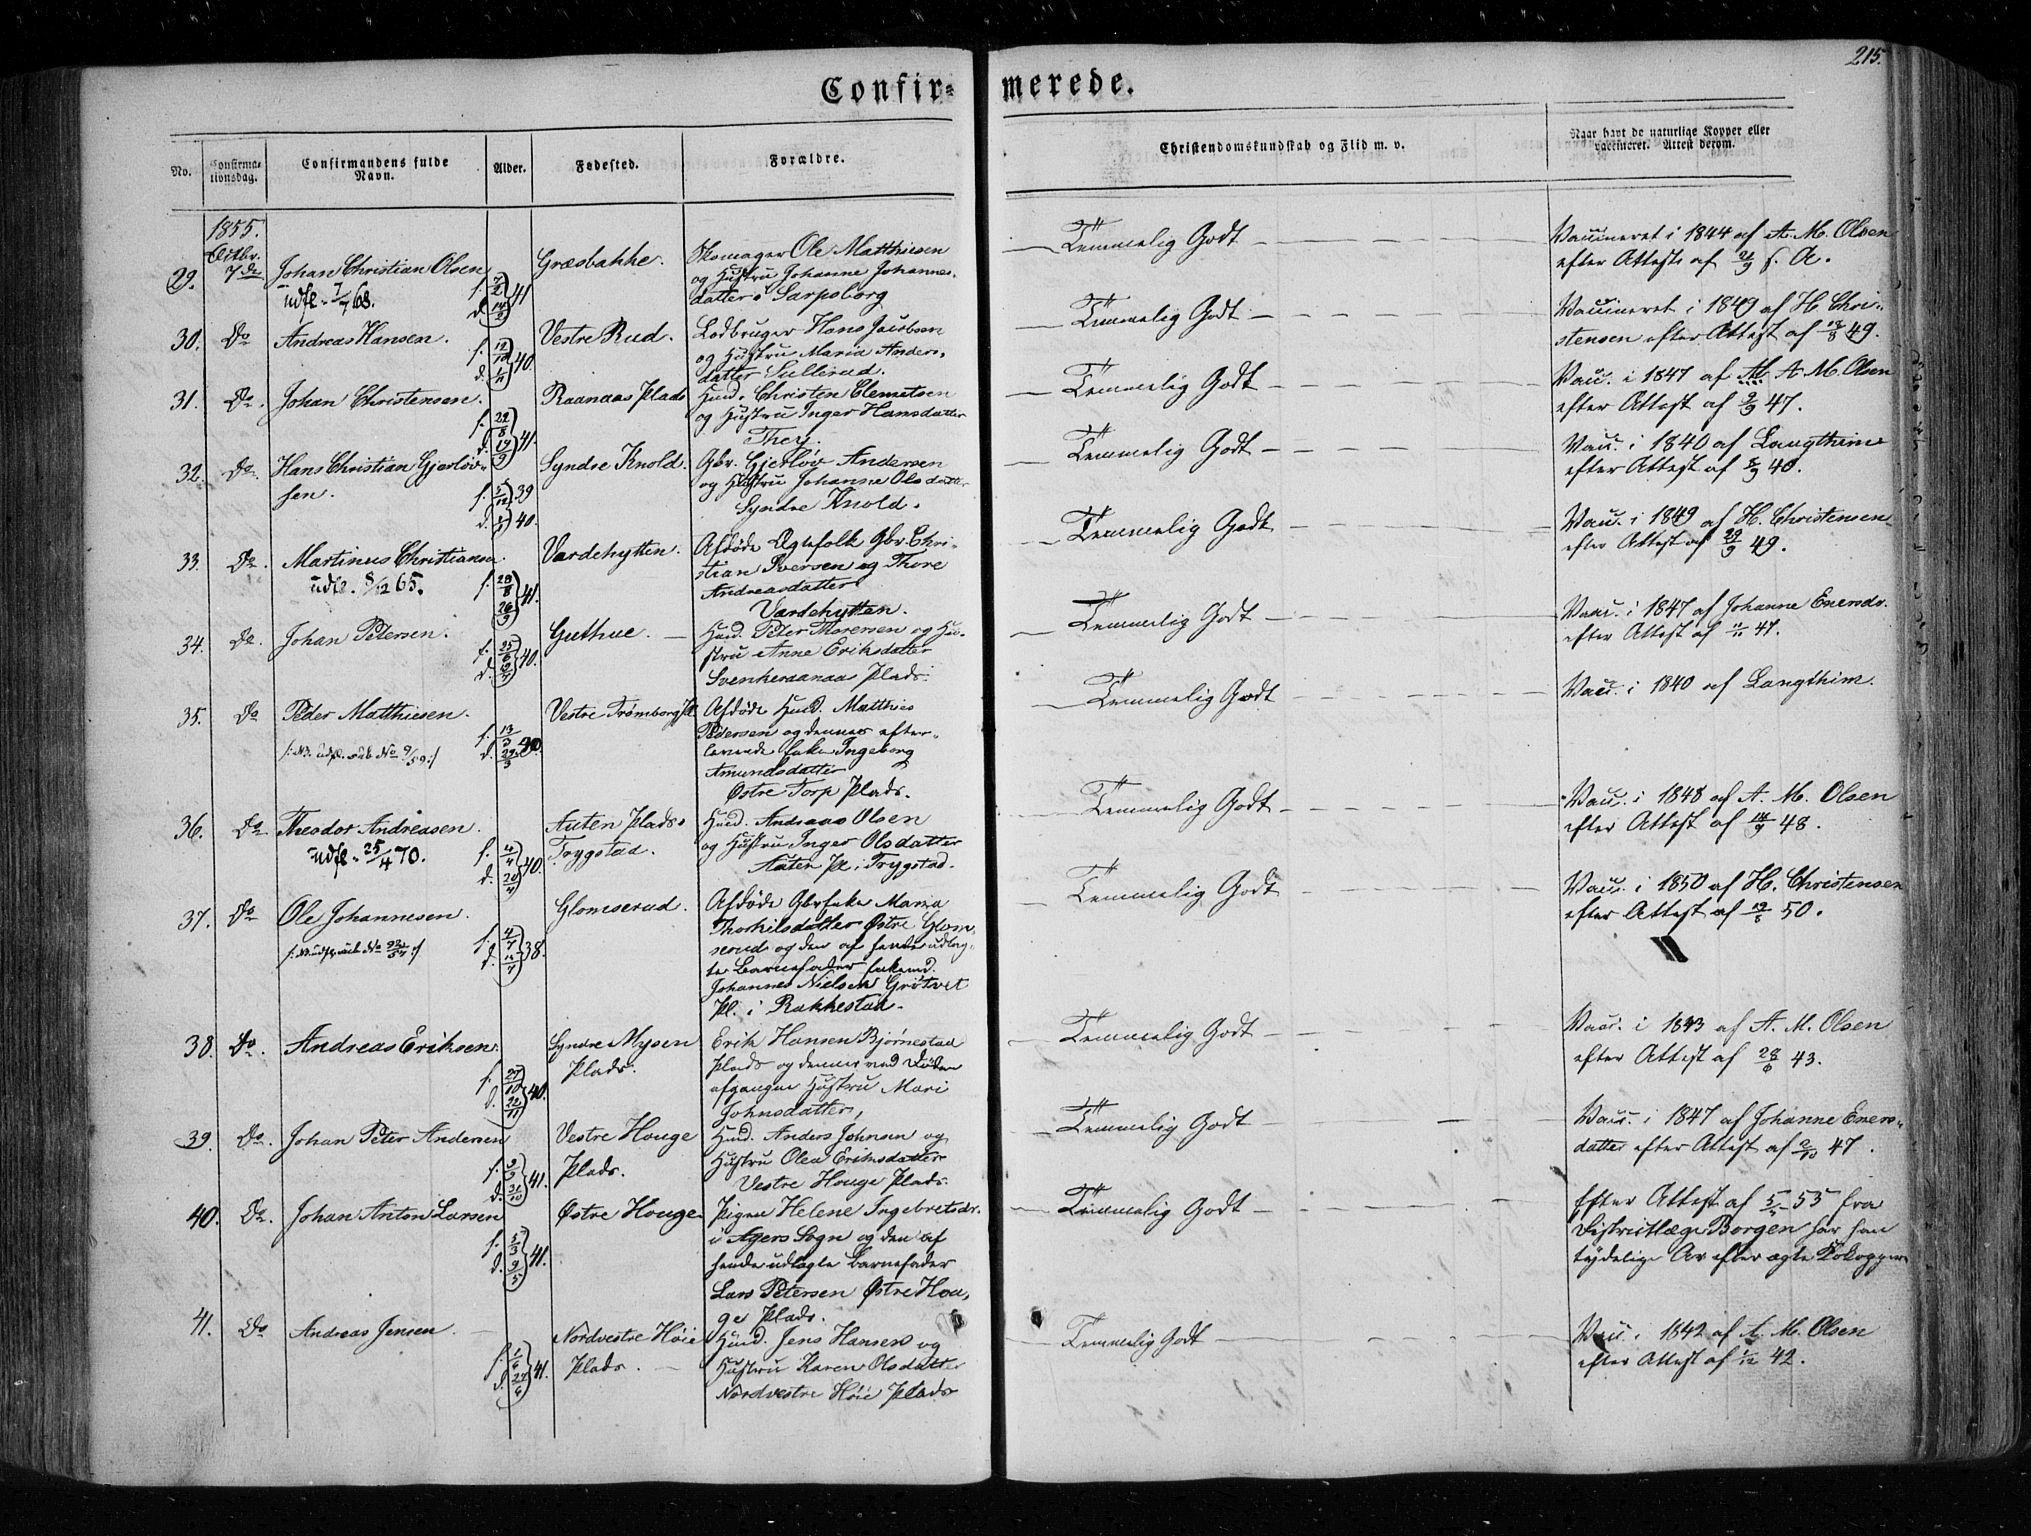 215.
Confirmerede.
No.
Confirmationsdag.
Confirmandens fulde Navn.
Alder.
Fødested.
Forældre.
Christendomskundskab og Flid m. v.
Naar havt de naturlige Kopper eller vaccineret. Attest derom.
1855.
Octbr.
29. 7de Johan Christian Olsen
udfl. 7/7 68.
f. 7/2
d. 14/2 } 41
Græsbakke.
Skomager Ole Matthiesen
og Hustru Johanne Johannes-
datter i Sarpsborg
Temmelig Godt
Vaccineret i 1844 af A. M. Olsen
efter Attest af 21/9 s. A.
30. Do Andreas Hansen.
f. 12/10
d. 1/11 } 40.
Vestre Rud.
Lodbruger Hans Jacobsen
og Hustru Maria Anders-
datter Sullerud.
Temmelig Godt
Vaccineret i 1849 af H. Chri-
stensen efter Attest af 12/8 49.
31. Do. Johan Christensen.
f. 22/8
d. 19/9 } 41.
Raanaas Plads
Husd. Christen Clemetsen
og Hustru Inger Hansdatter
Temmelig Godt
Vacc. i 1847 af A. M. Olsen
efter Attest af 9/9 47.
32. Do. Hans Christian Gjerløv-
sen.
f. 5/12 39
d. 1/1 40.
Syndre Knold.
Gbr. Gjerløv Andersen
og Hustru Johanne Olsdatter
Syndre Knold.
Temmelig Godt
Vacc. i 1840 af Langthim
efter Attest af 8/9 40.
33. Do. Martinus Christiansen.
udfl. 8/12 65.
f. 28/8
d. 26/9 } 41.
Vardehytten.
Afdøde Ægtefolk Gbr. Chri-
stian Iversen og Thore
Andreasdatter
Vardehytten.
Temmelig Godt
Vacc. i 1849 af H. Christensen
efter Attest af 29/9 49.
34. Do. Johan Petersen.
f. 25/6
d. } 40.
Guthue.
Husd. Peter Thoresen og Hu-
stru Anne Eriksdatter
Svenkeraanaas Plads.
Temmelig Godt
Vacc. i 1847 af Johanne Enersdr.
efter Attest af 11/11 47.
35. Do Peder Matthiesen.
f. 13/3
d. 29/3 } 40.
Vestre Trømborg Pl.
Afdøde Husd. Matthies
Pedersen og dennes efter-
levende Enke Ingeborg
Amundsdatter
Østre Torp Plads.
Temmelig Godt
Vacc. i 1840 af Langthim.
36. Do. Theodor Andreasen.
udfl. 25/4 70.
f. 4/4
d. 20/4 } 40.
Auten Plads i
Trygstad.
Husd. Andreas Olsen
og Hustru Inger Olsdatter
Auten Pl. i Trygstad.
Temmelig Godt
Vacc. i 1848 af A. M. Olsen
efter Attest af 14/9 48.
37. Do Ole Johannesen.
f. 4/7
d. } 38.
Glomserud.
Afdøde Gbrenke Maria
Thorkilsdatter Østre Glom-
serud og den af hende udlag-
te Barnefader Enkemd.
Johannes Nielsen Grøtvet
Pl. i Rakkestad.
Temmelig Godt
Vacc. i 1850 af H. Christensen
efter Attest af 50.
38. Do. Andreas Eriksen.
f. 27/10
d. 22/11 } 40.
Syndre Mysen
Plads.
Erik Hansen Bjørnestad
Plads og dennes ved Døden
afgangne Hustru Mari
Johnsdatter,
Temmelig Godt
Vacc. i 1843 af A. M. Olsen
efter Attest af 43.
39. Do. Johan Peter Andersen
f. 9/9
d. 31/10 } 41.
Vestre Houge
Plads.
Husd. Anders Johnsen og
Hustru Olea Eriksdatter
Vestre Houge Plads.
Temmelig Godt
Vacc. i 1847 af Johanne Eners-
datter efter Attest af 2/10 47.
40. Do. Johan Anton Larsen
f. 5/3
d. 9/5 } 41.
Østre Houge
Pigen Helene Ingebretsdr.
i Agers Sogn og den af
hende udlagte Barnefader
Lars Petersen Østre Hou-
ge Plads.
Temmelig Godt
Efter Attest af 53 fra
Districtlæge Borgen har han
tydelige Ar efter ægte Kokopper.
41. Do Andreas Jensen.
f. 1/6
d. 27/6 } 41.
Nordvestre Høie
Plads.
Husd. Jens Hansen og
Hustru Karen Olsdatter
Nordvestre Høie Plads
Temmelig Godt
Vacc. i 1842 af A. M. Olsen
efter Attest af 1/12 42.